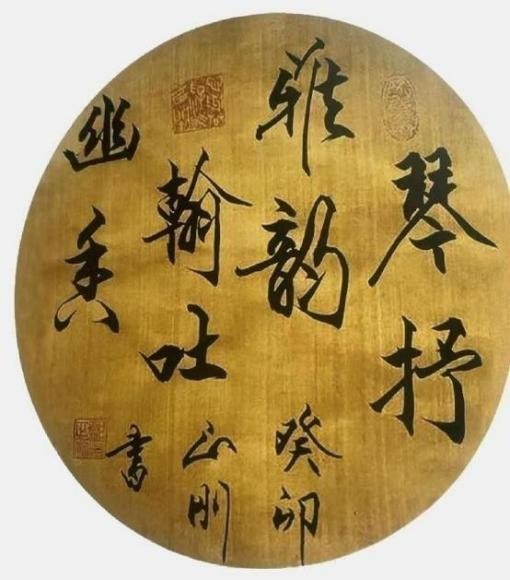 琴抒
雅韵癸卯
翰吐正刚
幽香书